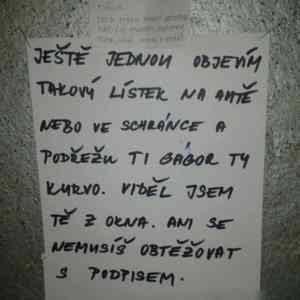 JEŠTĚ JEDNOU OBJEVÍM
TAKOVÝ LÍSTEK NA AUTĚ
NEBO VE SCHRÁNCE A
PODŘEŽU TI GÁGOR TY
KURVO. VIDĚL JSEM
TĚ Z OKNA. ANI SE
NEMUSÍŠ OBTĚŽOVAT
S PODPISEM.